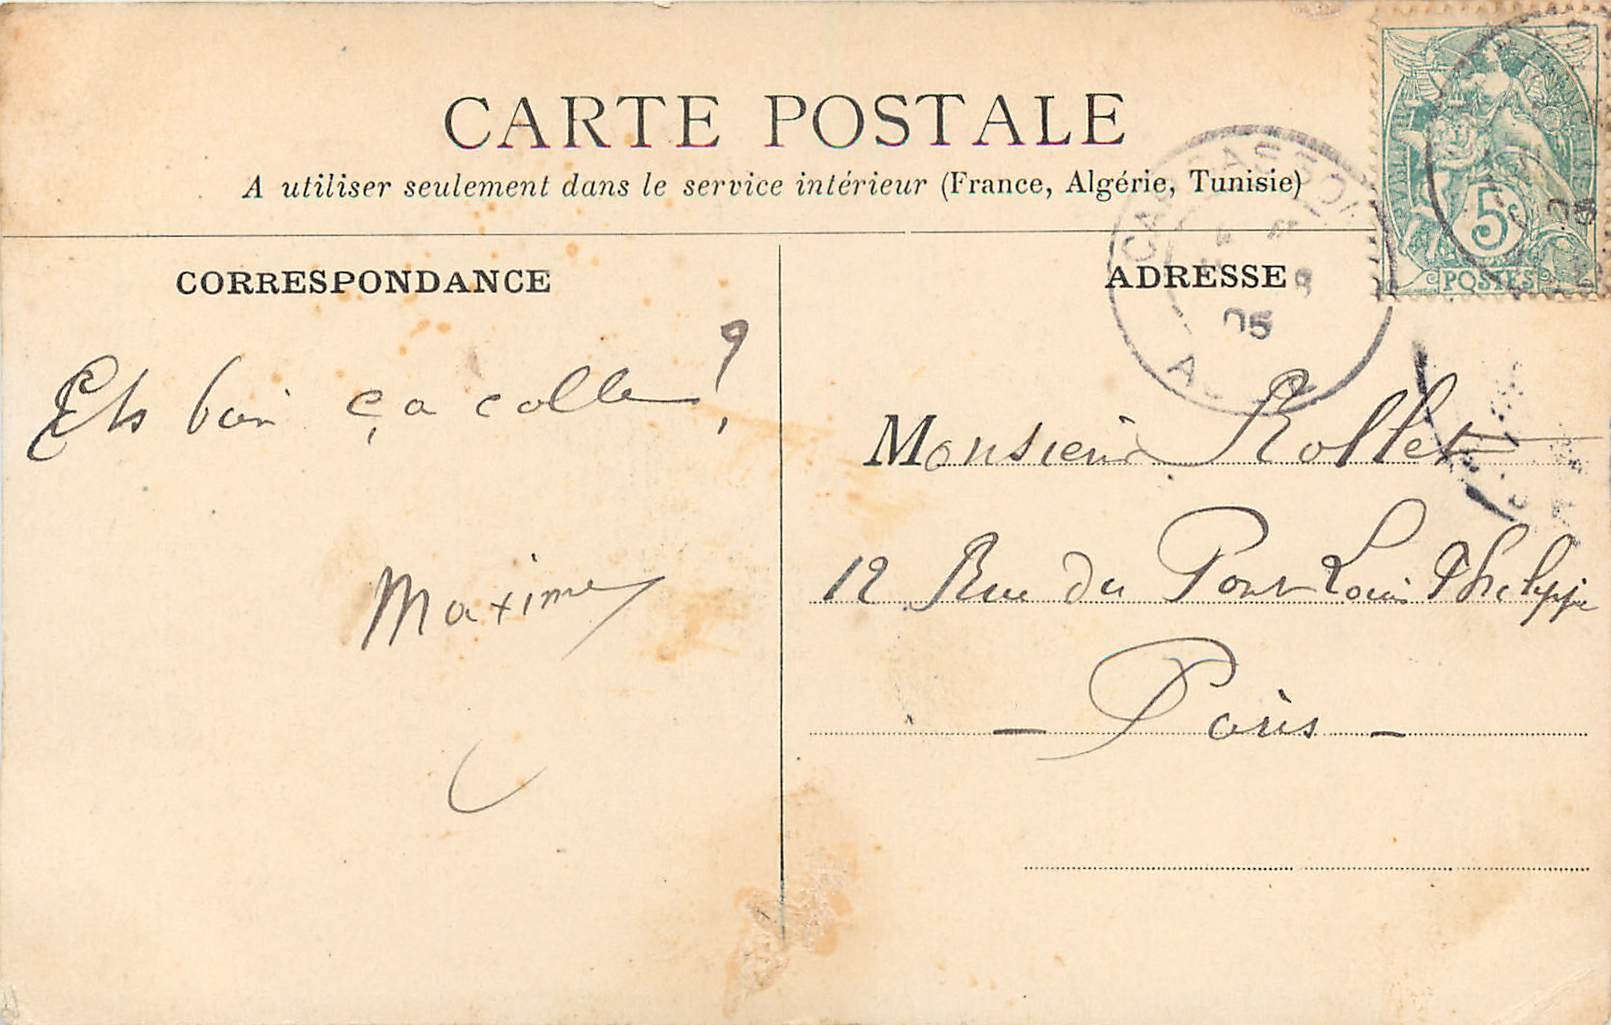 CARTE POSTALE
A utiliser seulement dans le service intérieur (France, Algérie, Tunisie)
CORRESPONDANCE
Eh bien ça colle ?
Maxime
ADRESSE
Monsieur Rollet
12 Rue du Pont Louis Philippe
- Paris -
CARCASSONNE
05
5c
POSTES